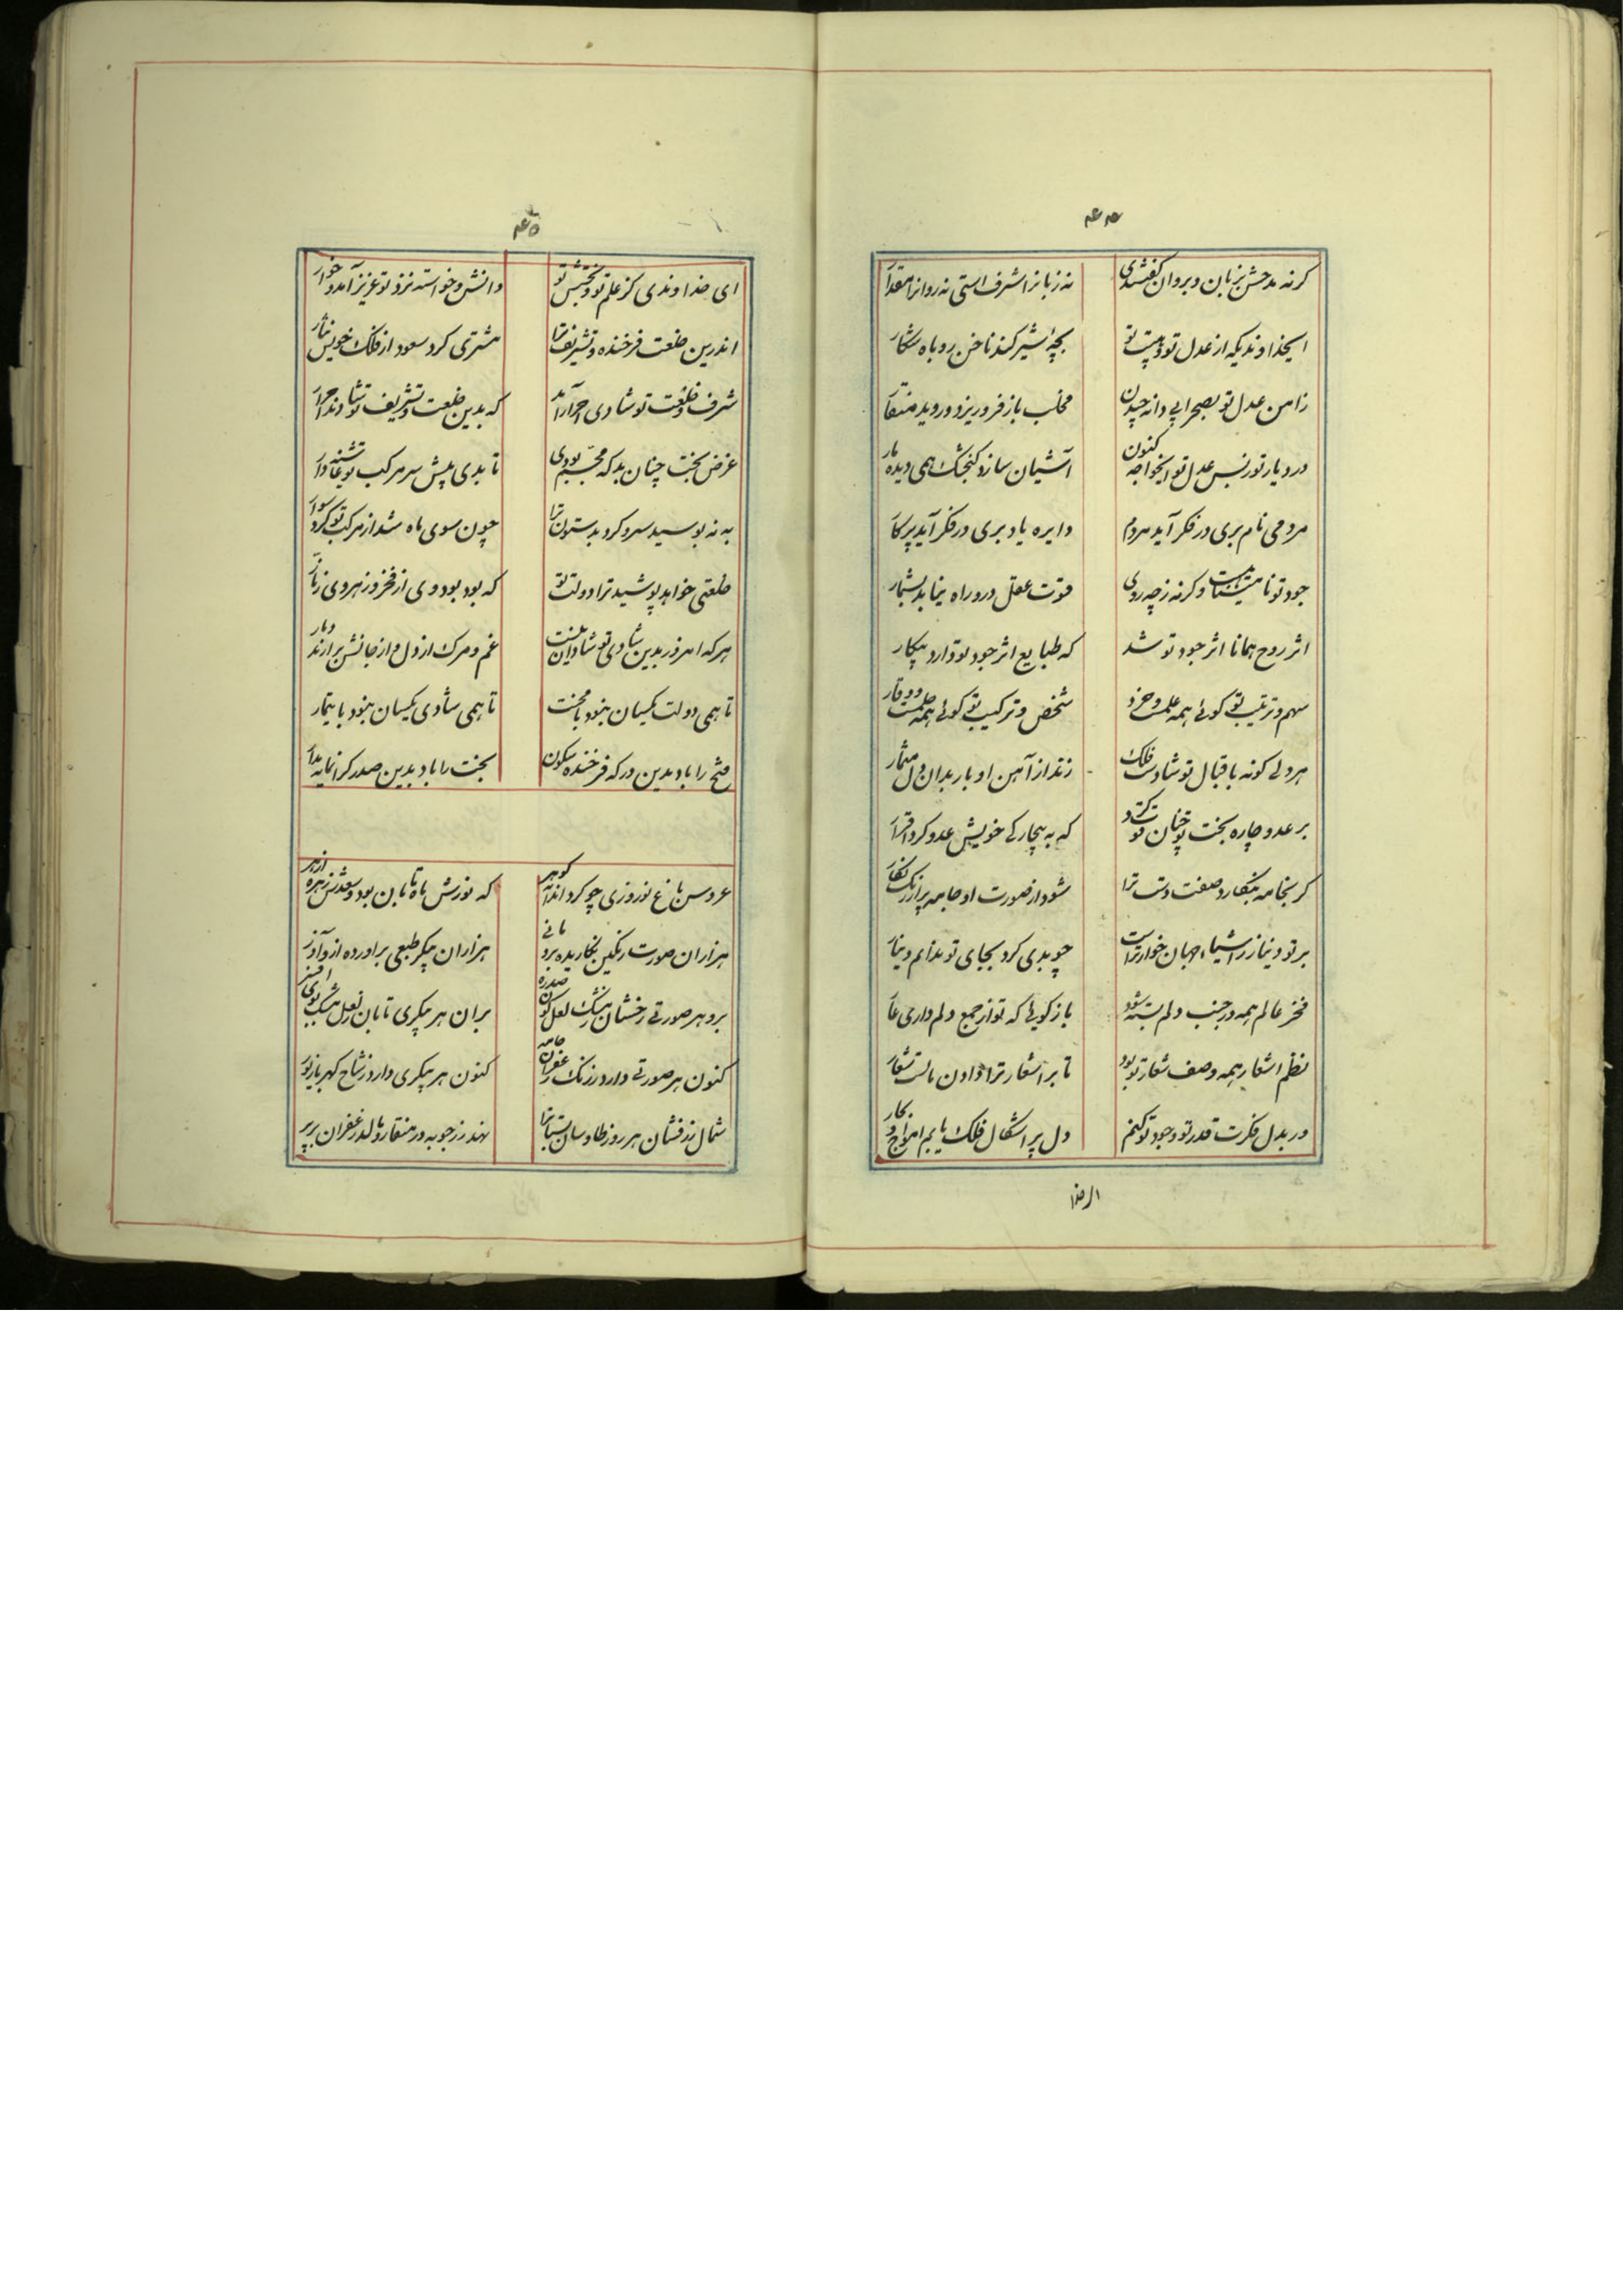 ۴۶۴
گرنه مدحش بزبان و بروان گفتندی نه زبانرا شرف استی نه روانرا مقدار
ایخداوندیکه از عدل تو و هیبت تو بچهٔ شیر کند ناخن روباه شکار
زامن عدل تو بصحرا پی دانه چیدن مخلب باز فرو ریزد و روید منقار
در دیار تو ز بس عدل تو ایخواجه کنون آشیان سازد کنجشک همی دیده مار
مردمی نام بری در فکر آید مردم دایره یاد بری در فکر آید پرکار
جود تو نامتناهیست وگرنه ز چه روی قوت عقل درو راه نیابد بشمار
اثر روح همانا اثر جود تو شد که طبایع اثر جود تو دارد بیکار
سهم و ترتیب تو گوئی همه علمست و خرد شخص و ترکیب تو گوئی همه حلمست و وقار
هر دلی کو نه باقبال تو شادست فلک زند از آهن او بار بدان دل مسمار
بر عدو چاره بخت تو چنان قوت کرد که به بیچارگی خویش عدو کرد اقرار
گر بخامه بنگارد صفت دست ترا شود از صورت او جامه پر از رنک نگار
بر تو دینار ز اشیاء جهان خوارتراست چو بدی کرد بجای تو ندانم دینار
فخر عالم همه در جنب دلم بسته شود باز گوئی که تو از جمع دلم داری عار
نظم اشعار همه وصف شعار تو بود تا بر اشعار ترا دادن مالست شعار
ور بدل فکرت قدر تو و جود تو کنم دل پر اشکال فلک یابم امواج و بحار
ای خدا
۴۶۵
ای خداوندی کز علم تو و بخشش تو دانش و خواسته نزد تو عزیز آمد و خوار
اندرین خلعت فرخنده و تشریف ترا مشتری کرد سعود از فلک خویش نثار
شرف و خلعت تو شادی احرار آمد که بدین خلعت و تشریف تو شادند احرار
غرض بخت چنان بد که مجسم بودی تا بدی پیش سر مرکب تو غاشیه دار
به نه بوسید سر و کرد بدستون ترا چون سوی ماه شد از مرکب تو گرد سوار
خلعتی خواهد پوشید ترا دولت تو که بود پود وی از فخر و ز بهروی ز تار
هر که امروز بدین شادی تو شادان نیست غم و مرک از دل و از جانش برارند دمار
تا همی دولت یکسان نبود با محنت تا همی شادی یکسان نبود با تیمار
فتح را باد بدین درکه فرخنده سکون بخت را باد بدین صدر گرانمایه مدار
عروس باغ نوروزی چو کرد اندام گوهر که نورش ماه تابان بود و سعدش زهره ازهر
هزاران صورت رنگین نگاریده برو مانی هزاران پیکر طبعی براورده ازو آذر
برو هر صورتی رخشان بمشک لعل گون صدره بران هر پیکری تابان ز لعل مشکبوی افسر
کنون هر صورتی دارد ز رنک زعفران جامه کنون هر پیکری دارد ز شاخ کهربا زیور
شمال زرفشان هر روز طاوسان بستانرا نهد زر جوبه در منقار و مالد زعفران بر پر